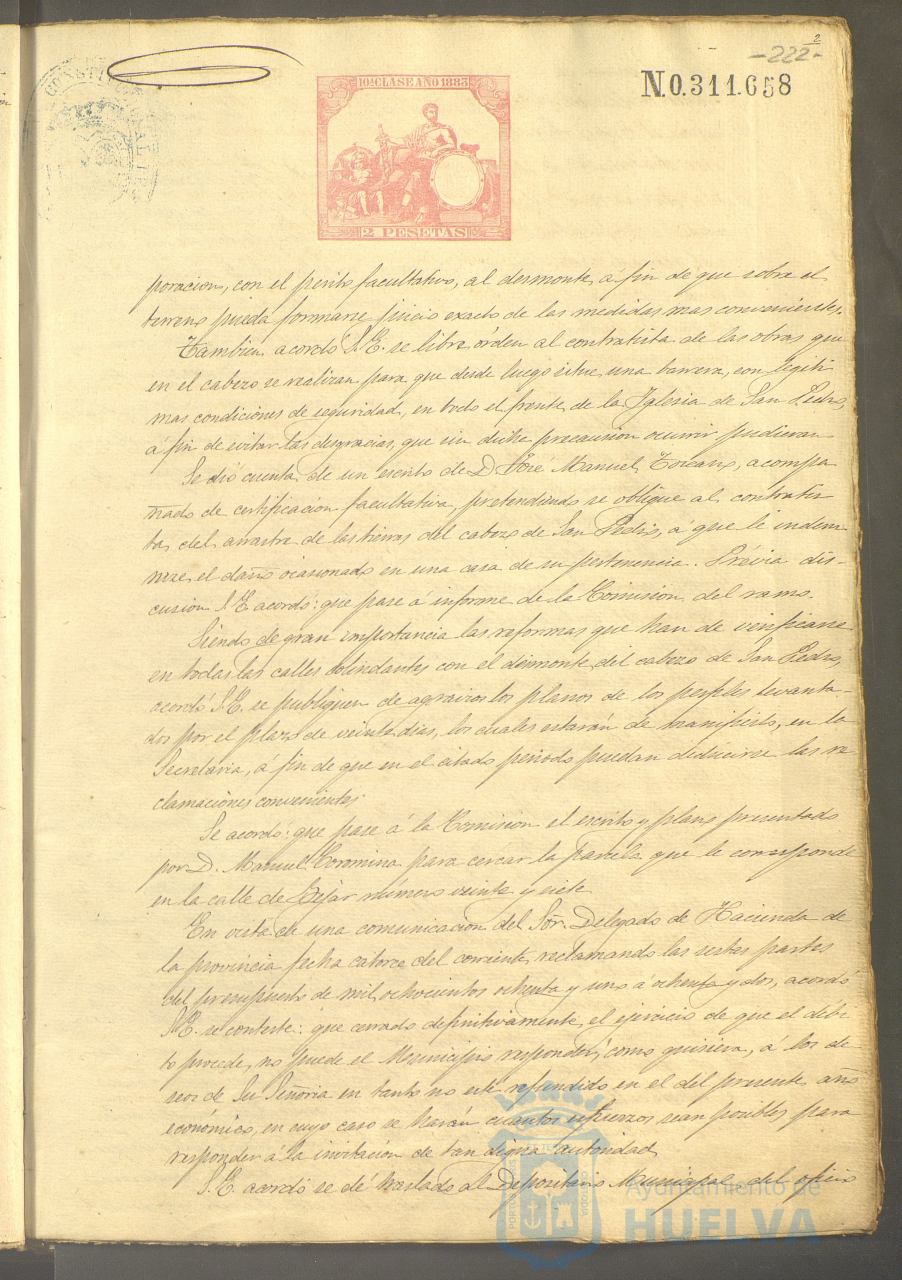 2
-222-
10ª CLASE AÑO 1883
N.0.311.658
2 PESETAS
poracion, con el perito facultativo, al desmonte, a fin de que sobre el
terreno pueda formarse juicio exacto de las medidas mas convenientes.
Tambien acordó S.E. se libre órden al contratista de las obras que
en el cabezo se realizan para que desde luego situe una barrera, con legiti
mas condiciones de seguridad, en todo el frente de la Iglesia de San Pedro,
á fin de evitar las desgracias, que sin dicha precaucion ocurrir pudieran
Se dió cuenta de un escrito de D. José Manuel Toscano, acompa
ñado de certificacion facultativa, pretendiendo se obligue al contratis
ta del arrastre de las tierras del cabezo de San Pedro, a que le indem
nize el daño ocasionado en una casa de su pertenencia. Prévia dis-
cusion S.E. acordó: que pase á informe de la Comision del ramo.
Siendo de gran importancia las reformas que han de verificarse
en todas las calles colindantes con el desmonte del cabezo de San Pedro,
acordó S.E. se publiquen de agravios los planos de los perfiles levanta-
dos por el plazo de veinte dias, los cuales estarán de manifiesto, en la
Secretaria, á fin de que en el citado periodo puedan deducirse las re
clamaciones convenientes
Se acordó: que pase á la Comision el escrito y plano presentado
por D. Manuel Coromina para cercar la parcela que le corresponde
en la calle de Bejar número veinte y siete
En vista de una comunicacion del Sõr. Delegado de Hacienda de
la provincia fecha catorce del corriente, reclamando las sestas partes
del presupuesto de mil ochocientos ochenta y uno á ochenta y dos, acordó
S.E. se conteste: que cerrado definitivamente el ejercicio de que el débi
to procede, no puede el Municipio responder, como quisiera, á los de
seos de Su Señoria en tanto no este refundido en el del presente año
económico, en cuyo caso se harán cuantos esfuerzos sean posibles para
responder á la invitacion de tan digna autoridad
S.E. acordó se dé traslado al Depositario Municipal del oficio
Ayuntamiento de
HUELVA